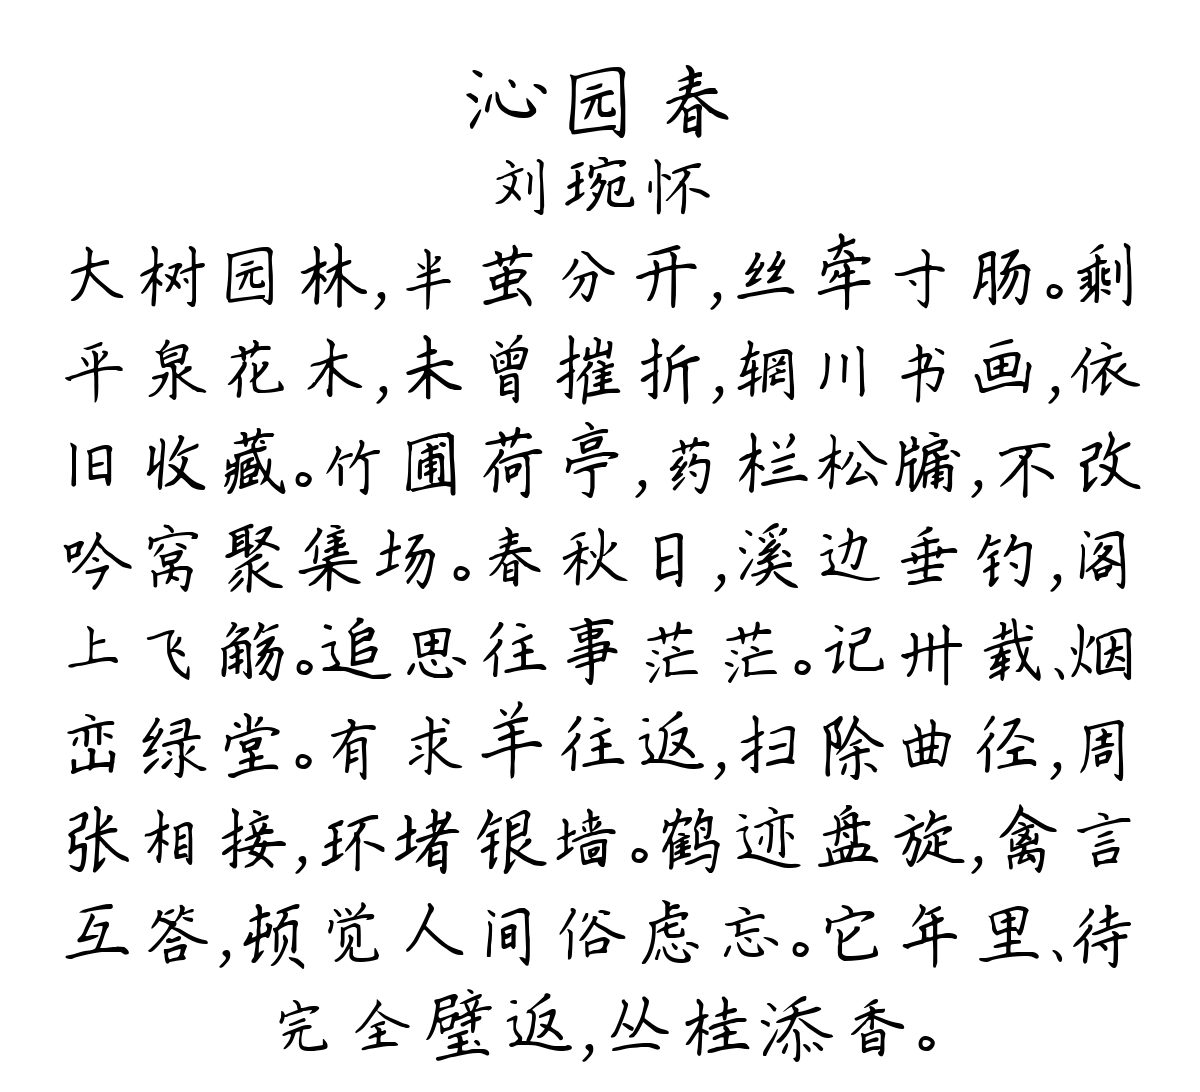 沁园春
刘琬怀
大树园林,半茧分开,丝牵寸肠。剩
平泉花木,未曾摧折,辋川书画,依
旧收藏。竹圃荷亭,药栏松牖,不改
吟窝聚集场。春秋日,溪边垂钓,阁
上飞觞。追思往事茫茫。记卅载、烟
峦绿堂。有求羊往返,扫除曲径,周
张相接,环堵银墙。鹤迹盘旋,禽言
互答,顿觉人间俗虑忘。它年里、待
完全璧返,丛桂添香。